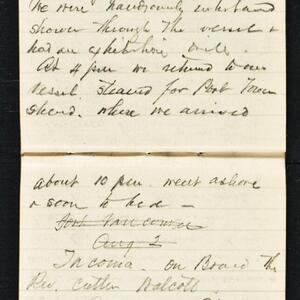 We were handsomely entertained
shown through the vessel &
had an exhibition drill.
At 4 pm we returned to our
vessel. Steamed for Port Town
shend. where we arrived
about 10 pm. went ashore
& soon to bed —
Fort Vancouver
Aug 2
Tacoma. on Board the
Rev. Cutter Wolcott